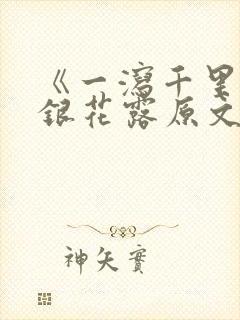 《一泻千里
银花露原文
神矢实